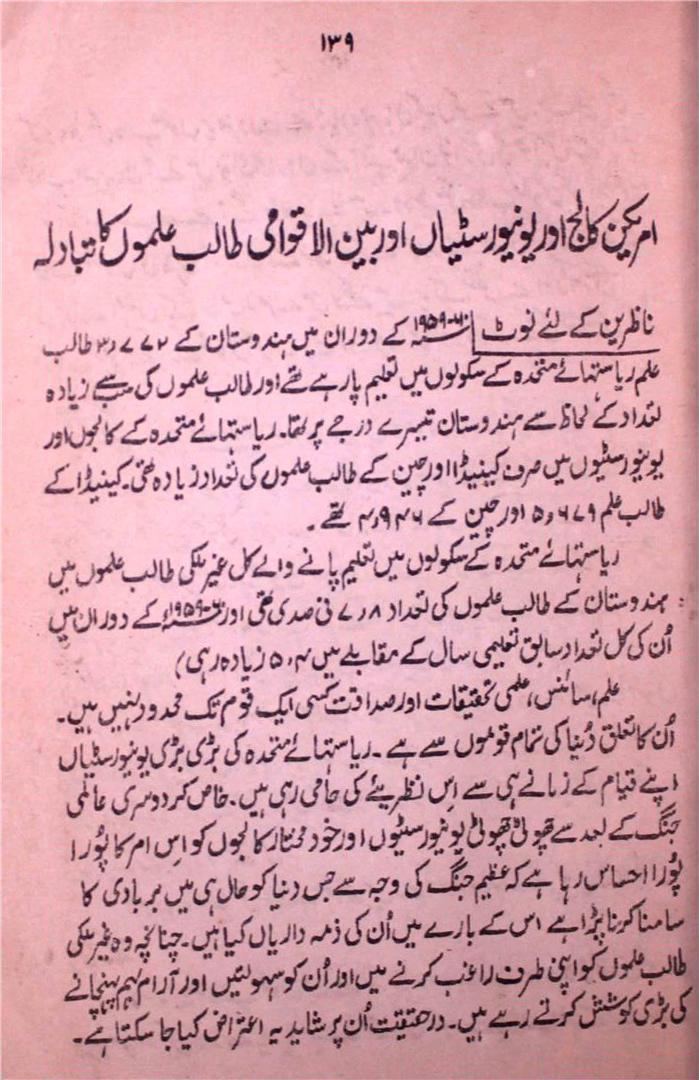 ۱۳۹
امریکن کالج اور یونیورسٹیاں اور بین الاقوامی طالب علموں کا تبادلہ
ناظرین کے لئے نوٹ ۶۰-۱۹۵۹ء کے دوران میں ہندوستان کے ۳٫۷۷۲ طالب
علم ریاستہائے متحدہ کے سکولوں میں تعلیم پا رہے تھے اور طالب علموں کی سب سے زیادہ
تعداد کے لحاظ سے ہندوستان تیسرے درجے پر تھا۔ ریاستہائے متحدہ کے کالجوں اور
یونیورسٹیوں میں صرف کینیڈا اور چین کے طالب علموں کی تعداد زیادہ تھی۔ کینیڈا کے
طالب علم ۵٫۶۷۹ اور چین کے ۴٫۹۴۶ تھے۔
ریاستہائے متحدہ کے سکولوں میں تعلیم پانے والے کل غیر ملکی طالب علموں میں
ہندوستان کے طالب علموں کی تعداد ۷٫۸ فی صدی تھی اور ۶۰-۱۹۵۹ء کے دوران میں
اُن کی کل تعداد سابق تعلیمی سال کے مقابلے میں ۵٫۴ زیادہ رہی)
علم، سائنس، علمی تحقیقات اور صداقت کسی ایک قوم تک محدود نہیں ہیں۔
اُن کا تعلق دُنیا کی تمام قوموں سے ہے۔ ریاستہائے متحدہ کی بڑی بڑی یونیورسٹیاں
اپنے قیام کے زمانے ہی سے اِس نظریئے کی حامی رہی ہیں۔ خاص کر دوسری عالمی
جنگ کے بعد سے چھوٹی چھوٹی یونیورسٹیوں اور خود مختار کالجوں کو اِس امر کا پُورا
پُورا احساس رہا ہے کہ عظیم جنگ کی وجہ سے جس دنیا کو حال ہی میں بربادی کا
سامنا کرنا پڑا ہے اس کے بارے میں اُن کی ذمہ داریاں کیا ہیں۔ چنانچہ وہ غیر ملکی
طالب علموں کو اپنی طرف راغب کرنے میں اور اُن کو سہولتیں اور آرام بہم پہنچانے
کی بڑی کوشش کرتے رہے ہیں۔ درحقیقت اُن پر شاید یہ اعتراض کیا جا سکتا ہے۔